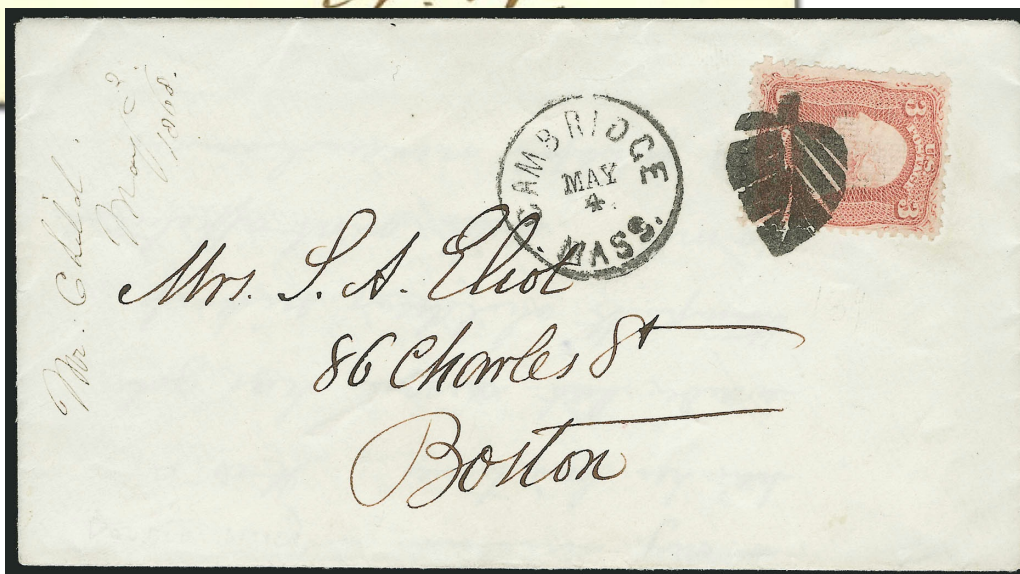 Mr. Child.
May 3.
1868.
CAMBRIDGE
MAY
4
MASS.
3
U.S.
3
Mrs. S. A. Eliot
86 Charles St
Boston